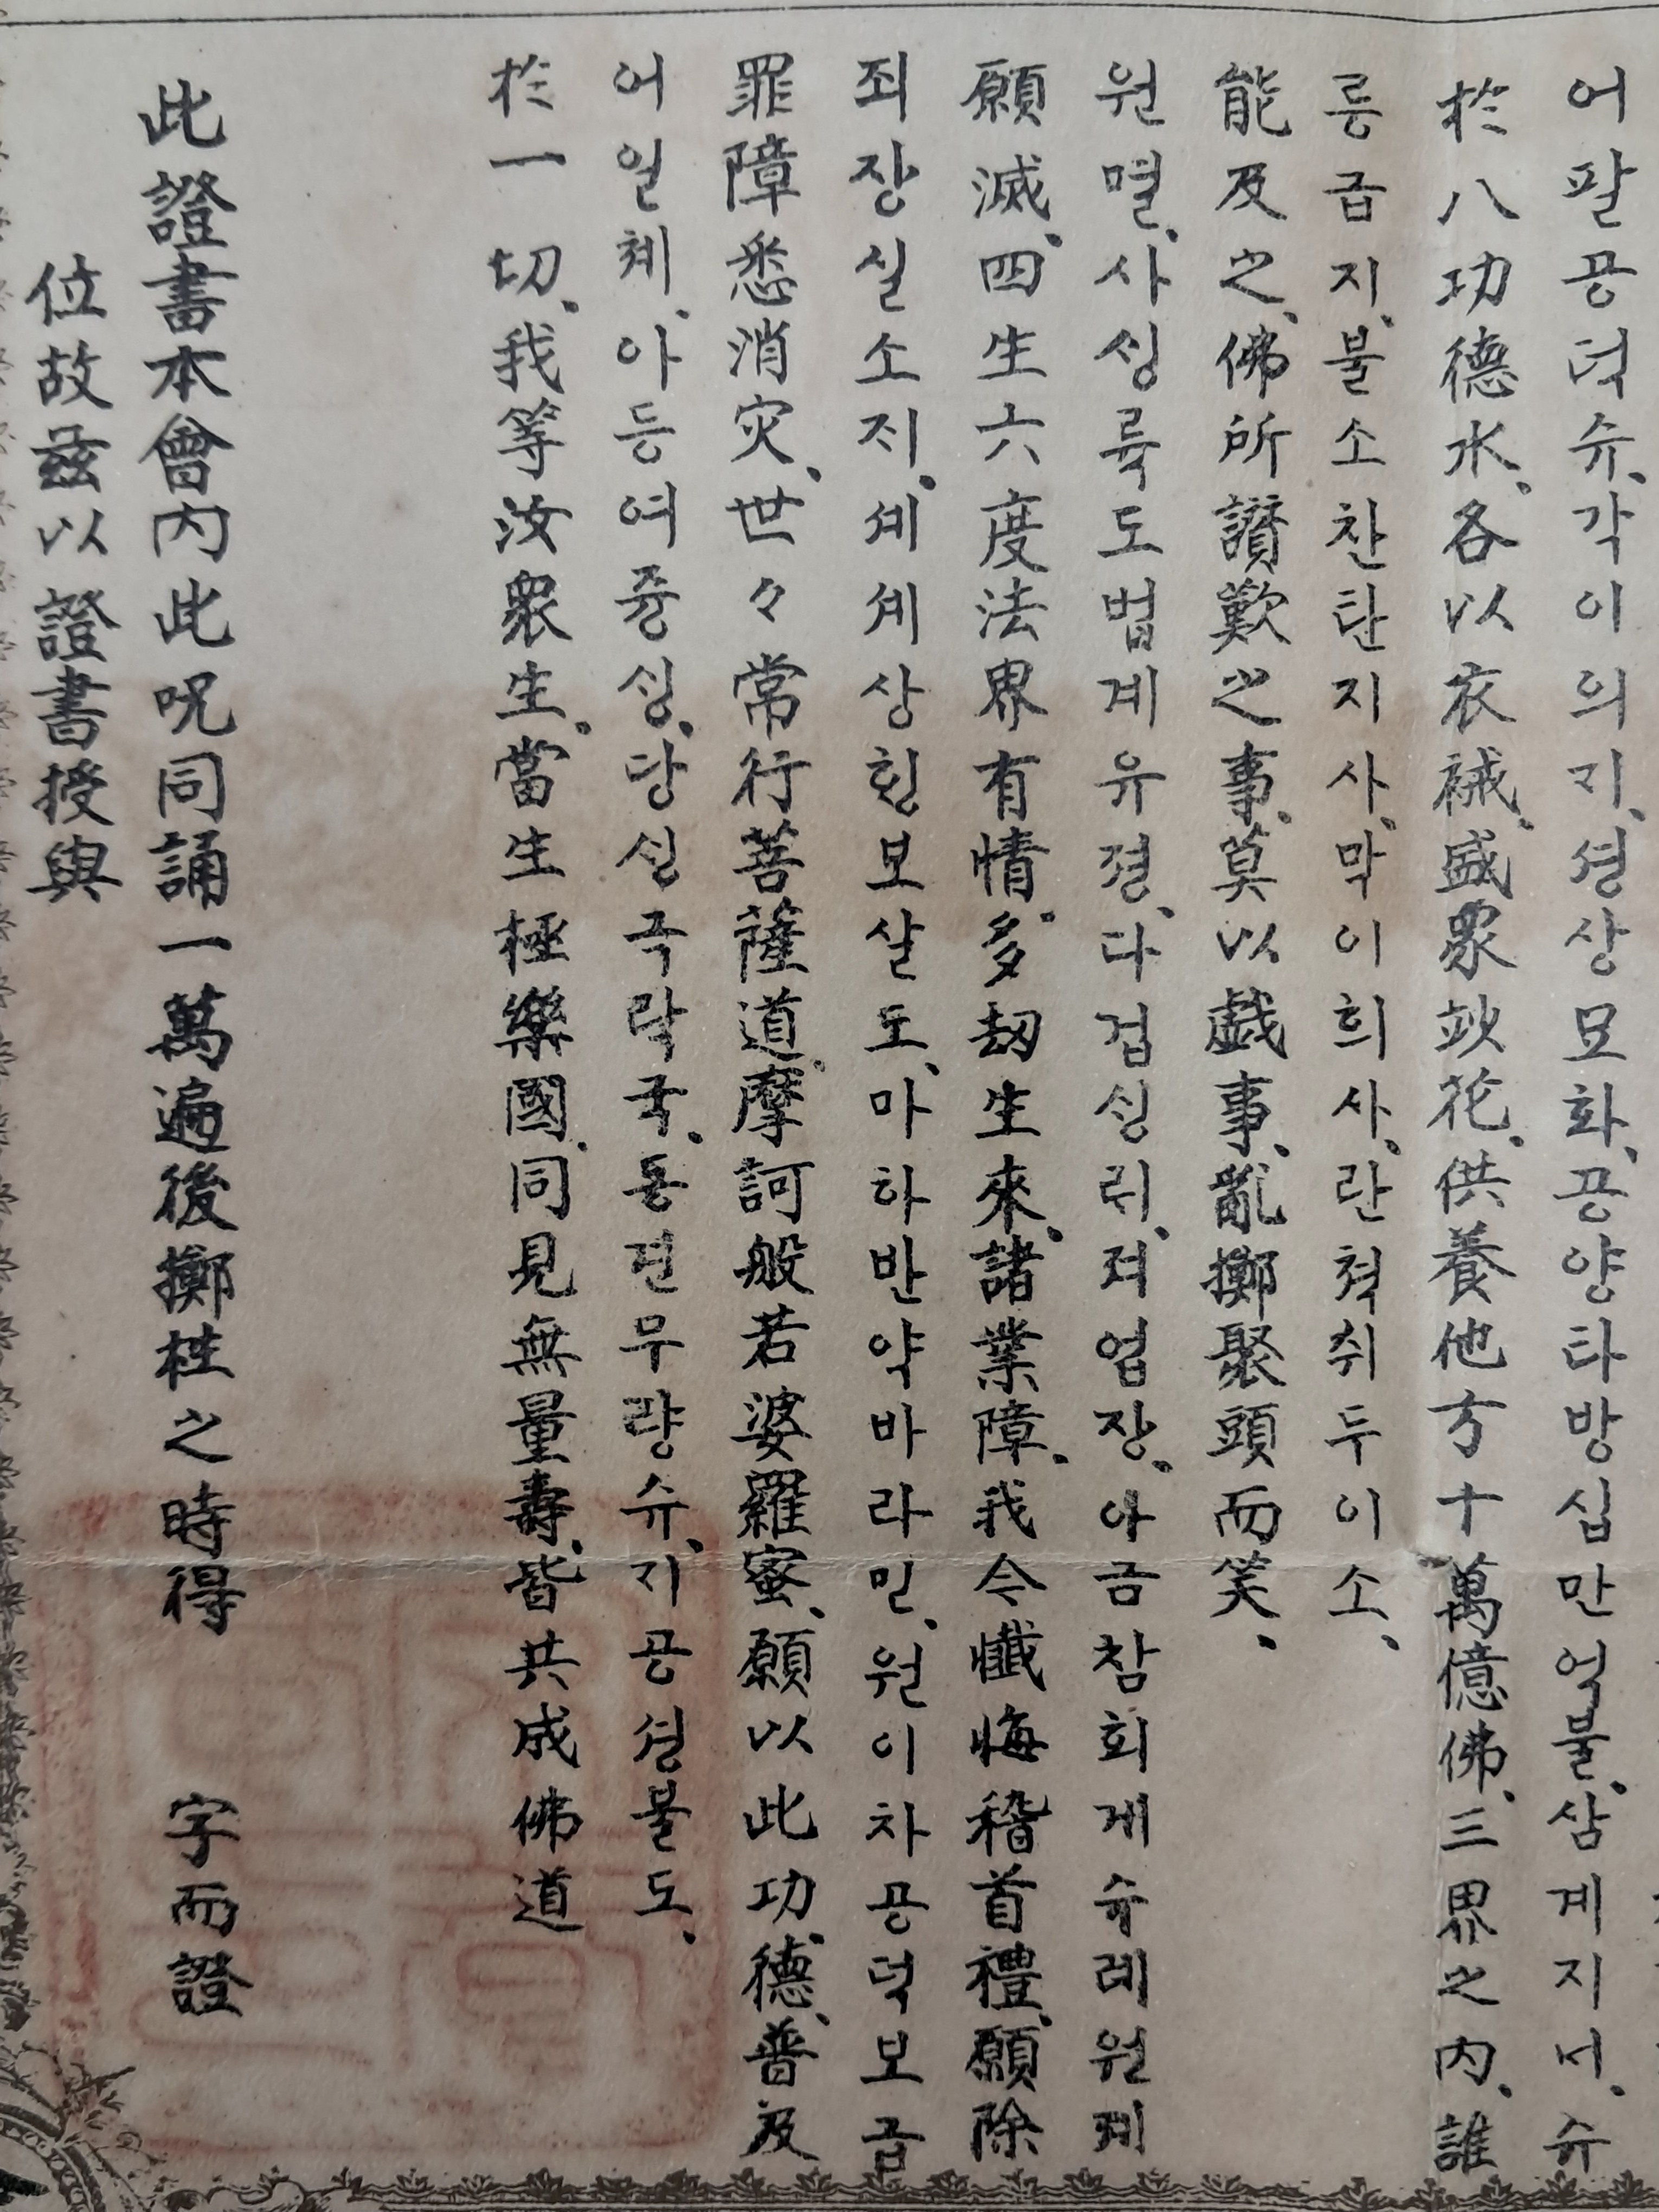 어팔공덕슈、각이의지、셩상묘화、공양타방십만억불、삼계지너、슈
於八功德水、各以衣裓、盛衆妙花、供養他方十萬億佛、三界之內、誰
릉급지、불소찬탄지사、막이희사、란쳑취두이소、
能及之、佛所讃歎之事、莫以戯事、亂擲聚頭而笑、
원멸、사싱륙도법계유졍、다겁싱릐、져업장、아금참회계슈례원졔
願滅、四生六度法界有情、多劫生來、諸業障、我今懺悔稽首禮、願除
죄장실소지、셰셰상힝보살도、마하반약바라밀、원이차공덕보급
罪障悉消灾、世々常行菩薩道、摩訶般若婆羅蜜、願以此功德、普及
어일쳬、아등여즁싱、당싱극락국、동견무량슈、지공셩불도、
於一切、我等汝衆生、當生極樂國、同見無量壽、皆共成佛道
此證書本會內此呪同誦一萬遍後擲柱之時得 字而證
位故玆以證書授與